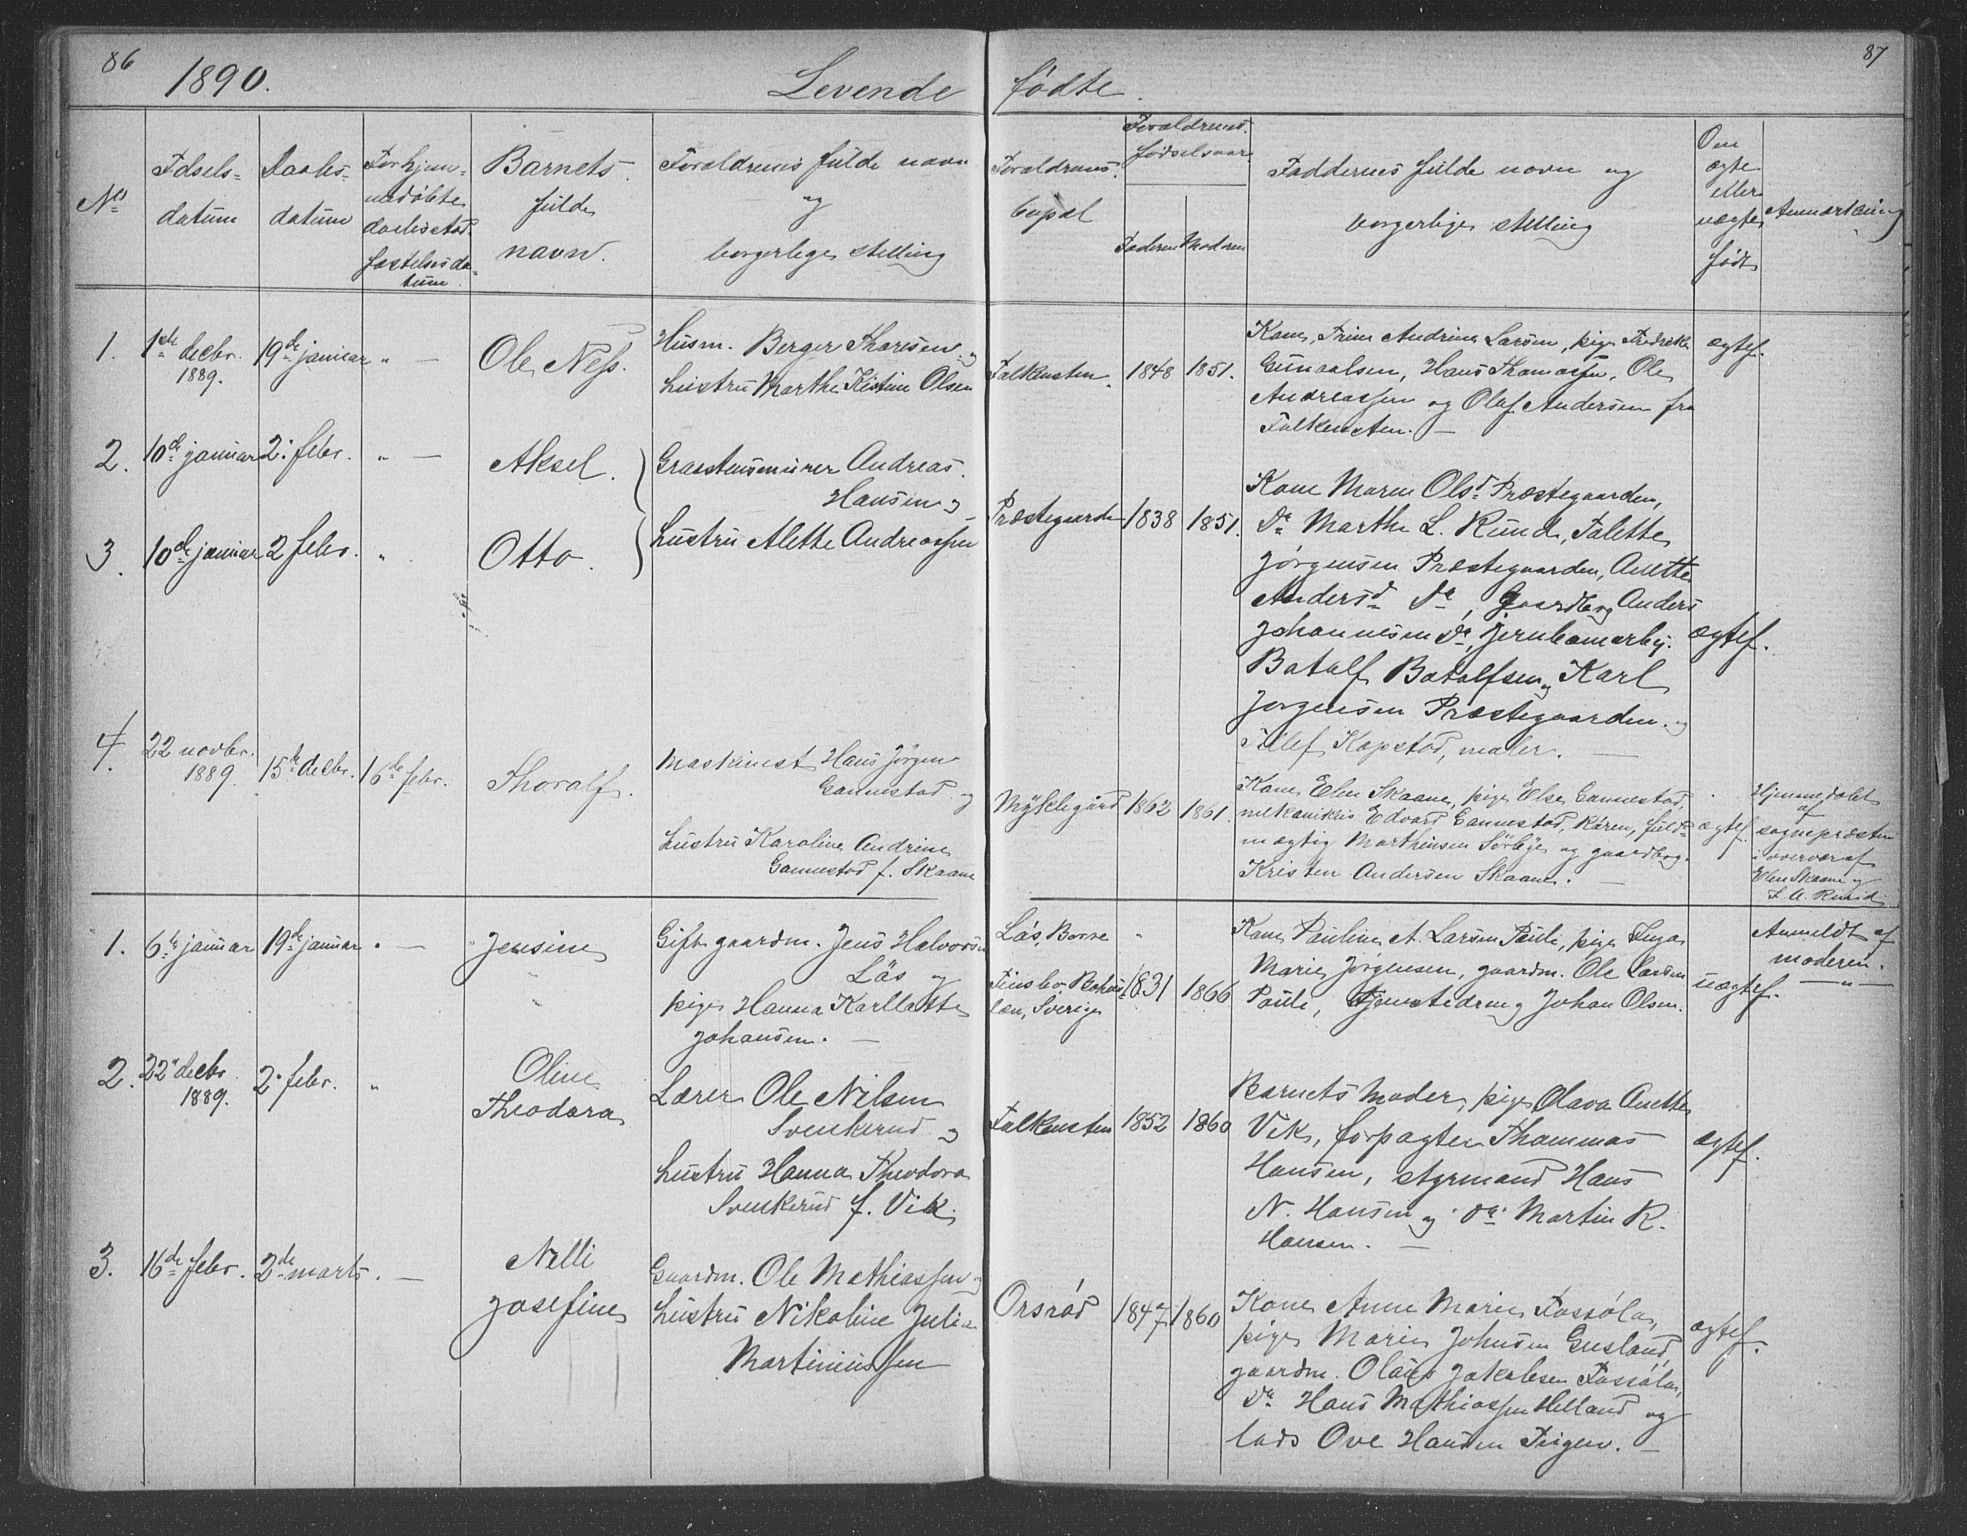 86
1890.
Levende fødte.
87
No
Fdsels-
datum
Daabs-
datum
For hjem-
medøbte
daabssted,
fæstelsesda-
tum
Barnets
fulde
navn.
Forældrenes fulde navn
og
borgerlige stelling
Forældrenes
bopæl
Forældrenes
fødselsaar
Faderen Moderen
Faddernes fulde navn og
borgerlige stelling
Om
ægte
eller
uægte
født
Anmærkning
1.
1ste decbr.
1889.
19de januar
" —
Ole Ness.
Husm. Berger Thoresen og
hustru Marthe Kistine Olsen
Falkensten.
1848
1851.
Kone Trine Andrine Larsen, pige Fredrikke
Gunvalsen, Hans Thomassen, Ole
Andreassen og Olaf Andersen fra
Falkensten. —
ægtef.
2.
10de januar
2. febr.
" —
Aksel.
Graastensmurer Andreas
Hansen og
3.
10de januar
2 febr.
"
Otto.
hustru Alette Andreassen
Præstegaarden
1838
1851.
Kone Maren Olsd. Præstegaarden,
Do Marthe L. Rund, Talette
Jørgensen Præstegaarden, Anette
Andersd. Do, Gaardbrg Anders
Johannesen Do, Jernbanearbj.
Batolf Batolfsen og Karl
Jørgensen Præstegaarden og
Tellef Kopstad, maler. —
ægtef.
4.
22 novbr.
1889.
15de decbr.
16de febr.
Thoralf
Maskinest Hans Jørgen
Gannestad og
hustru Karoline Andrine
Gannestad f. Skaane
Nyklegård
1862
1861.
Kone Elen Skaane, pige Else Gannestad,
mekanikus Edvard Gannestad, Køren, fuld-
mægtig Marthinsen Sörbye og gaardbrg.
Kristen Andersen Skaane. —
ægtef.
Hjemmedøbt
af
sognepræsten
i overvær af
Elen Skaane og
L. A. Rund
1.
6te januar
19de januar
" —
Jensine
Gift gaardm. Jens Halvorsen
Lås og
pige Hanna Karllatte
Johansen. —
Lås, Borre
Bohus
len, Sverige
1831
1866
Kone Pauline A. Larsen Paule, pige Inga
Marie Jørgensen, gaardm. Ole Larsen
Paule, Tjenestedreng Johan Olsen.
uægtef.
Anmeldt af
moderen.
— " —
2.
22 decbr
1889.
2. febr.
"
Oline
Theodora
Lærer Ole Nilsen
Svenkerud og
hustru Hanna Theodora
Svenkerud f. Vik.
Falkensten
1852
1860
Barnets Moder, pige Olava Anette
Vik, forpagter Thommas
Hansen, styrmand Hans
N. Hansen og do Martin R.
Hansen. —
ægtef.
3.
16de febr.
2de marts
. —
Nelli
Josefine
Gaardm. Ole Mathiassen og
hustru Nikoline Julie
Martiniussen
Orsrød
1847
1860
Kone Anne Marie Fossøla,
pige Marie Johnsen Gusland
gaardm. Olaus Jakobsen Fossøla,
Do Hans Mathiassen Helland og
lods Ove Hansen Teigen. —
ægtef.